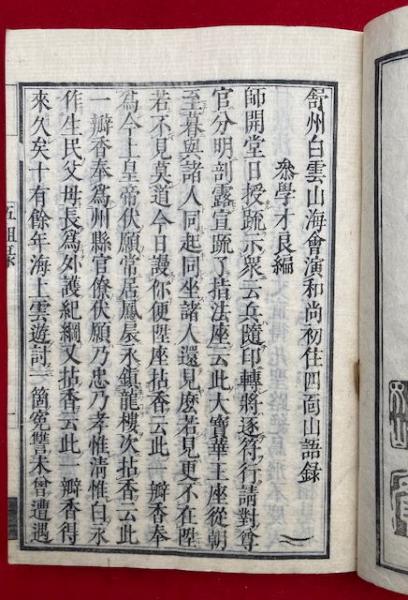 舒州白雲山海會演和尚初住四面山語錄
參學才良編
師開堂日授䟽示衆云兵隨印轉將逐符行請對尊
官分明剖露宣䟽了指法座云此大寶華王座從朝
至暮與諸人同起同坐諸人還見麽若見更不在陞
若不見莫道今日謾你便陞座拈香云此一瓣香奉
爲今上皇帝伏願常居鳳扆永鎮龍樓次拈香云此
一瓣香奉爲州縣官僚伏願乃忠乃孝惟淸惟白永
作生民父母長爲外護紀綱又拈香云此一瓣香得
來久矣十有餘年海上雲遊討一箇寃讐未曾遭遇
五祖錄
一